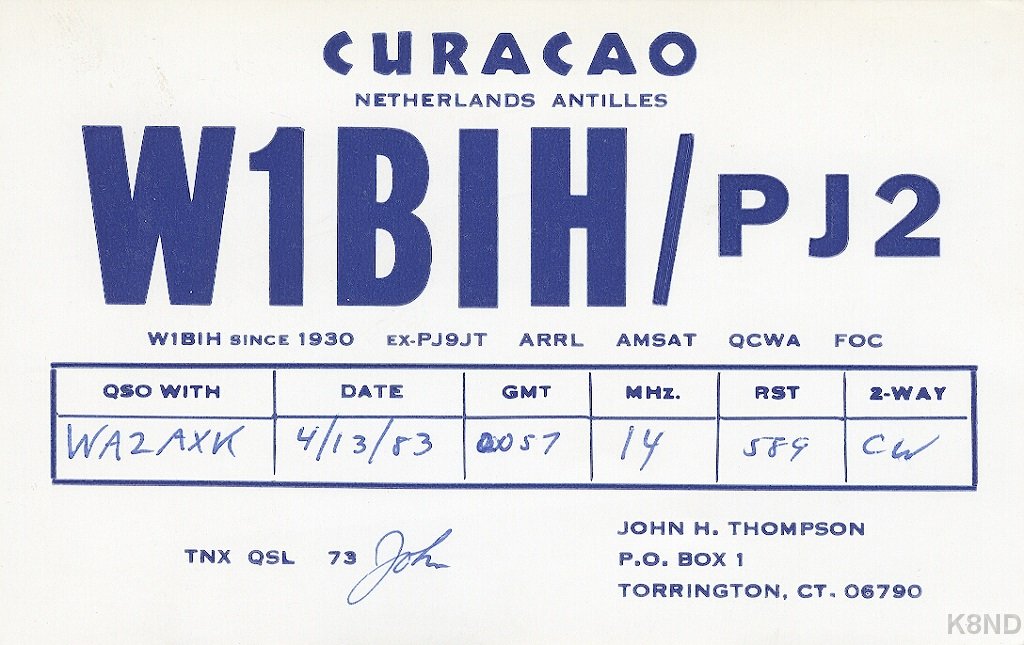 CURACAO
NETHERLANDS ANTILLES
W1BIH/PJ2
W1BIH SINCE 1930 EX-PJ9JT ARRL AMSAT QCWA FOC
QSO WITH DATE GMT MHz. RST 2-WAY
WA2AXK 4/13/83 0057 14 589 CW
TNX QSL 73 John
JOHN H. THOMPSON
P.O. BOX 1
TORRINGTON, CT. 06790
K8ND